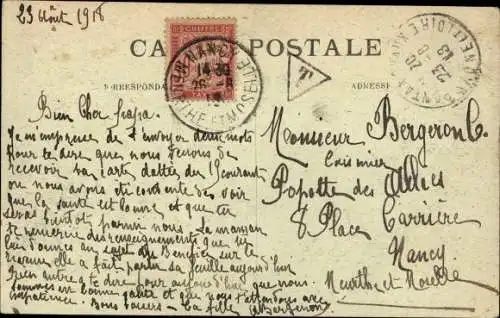 23 Août 1918
CARTE POSTALE
CORRESPONDANCE
ADRESSE
NANCY
MEURTHE ET MOSELLE
14 30
T
Bien Cher Papa.
Je m'empresse de t'envoyer deux mots
pour te dire que nous venons de
recevoir ta carte dattée du courant
ou nous avons été contente de voir
que la santé est bonne et que tu
seras bientot parmi nous La maman
te remercie des renseignements que tu
lui donnes au sujet du
elle a fait partir sa feuille aujourd'hui
Rien autre a te dire pour aujourd'hui que nous
sommes en bonne santé et que nous t'attendons avec
impatience. Bons baisers - ta fille Bergeron
Monsieur Bergeron C.
Cuisinier
Popotte des Alliés
8 Place Carrière
Nancy
Meurthe et Moselle